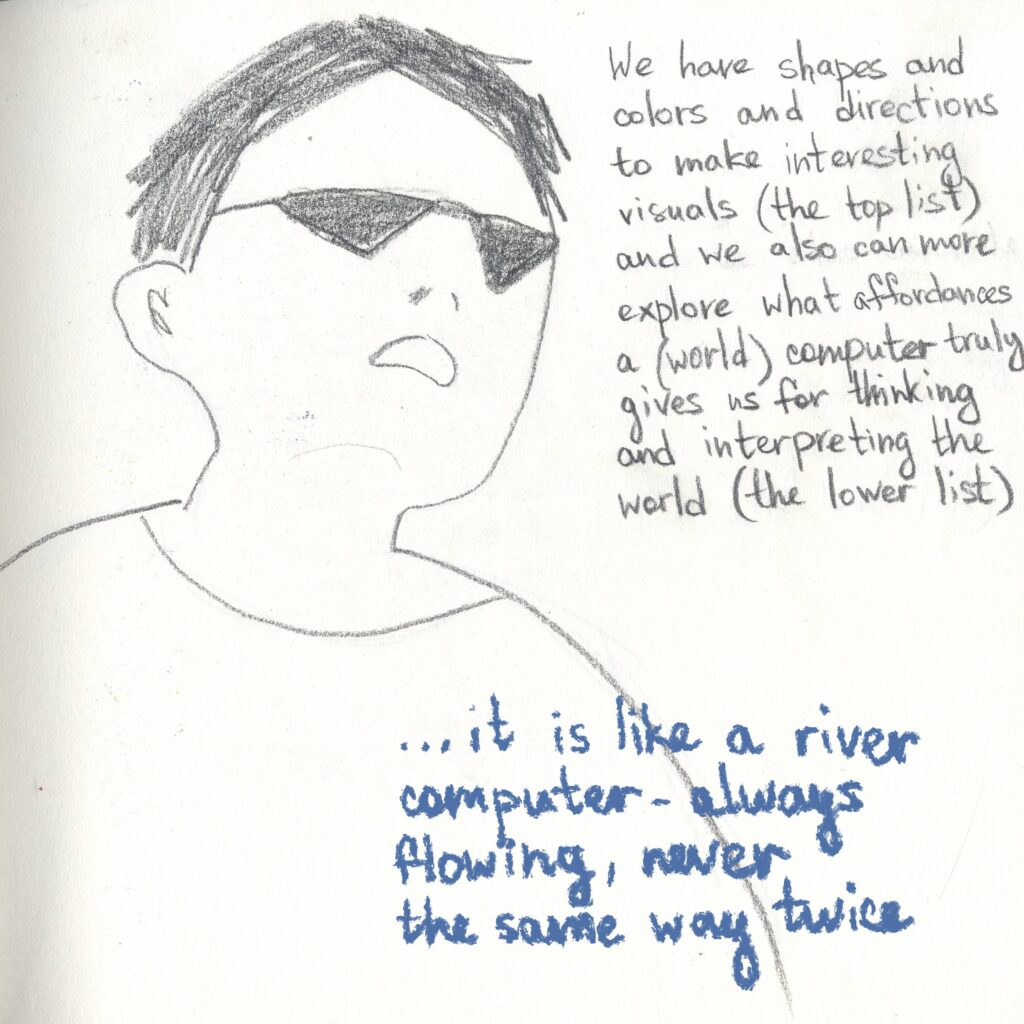 We have shapes and
colors and directions
to make interesting
visuals (the top list)
and we also can more
explore what affordances
a (world) computer truly
gives us for thinking
and interpreting the
world (the lower list)
...it is like a river
computer - always
flowing, never
the same way twice